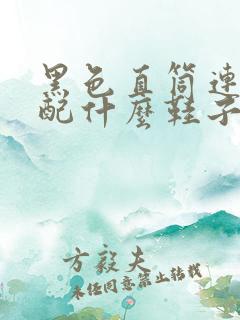 黑色直筒連
配什麼鞋子
方毅夫
未经同意禁止转载